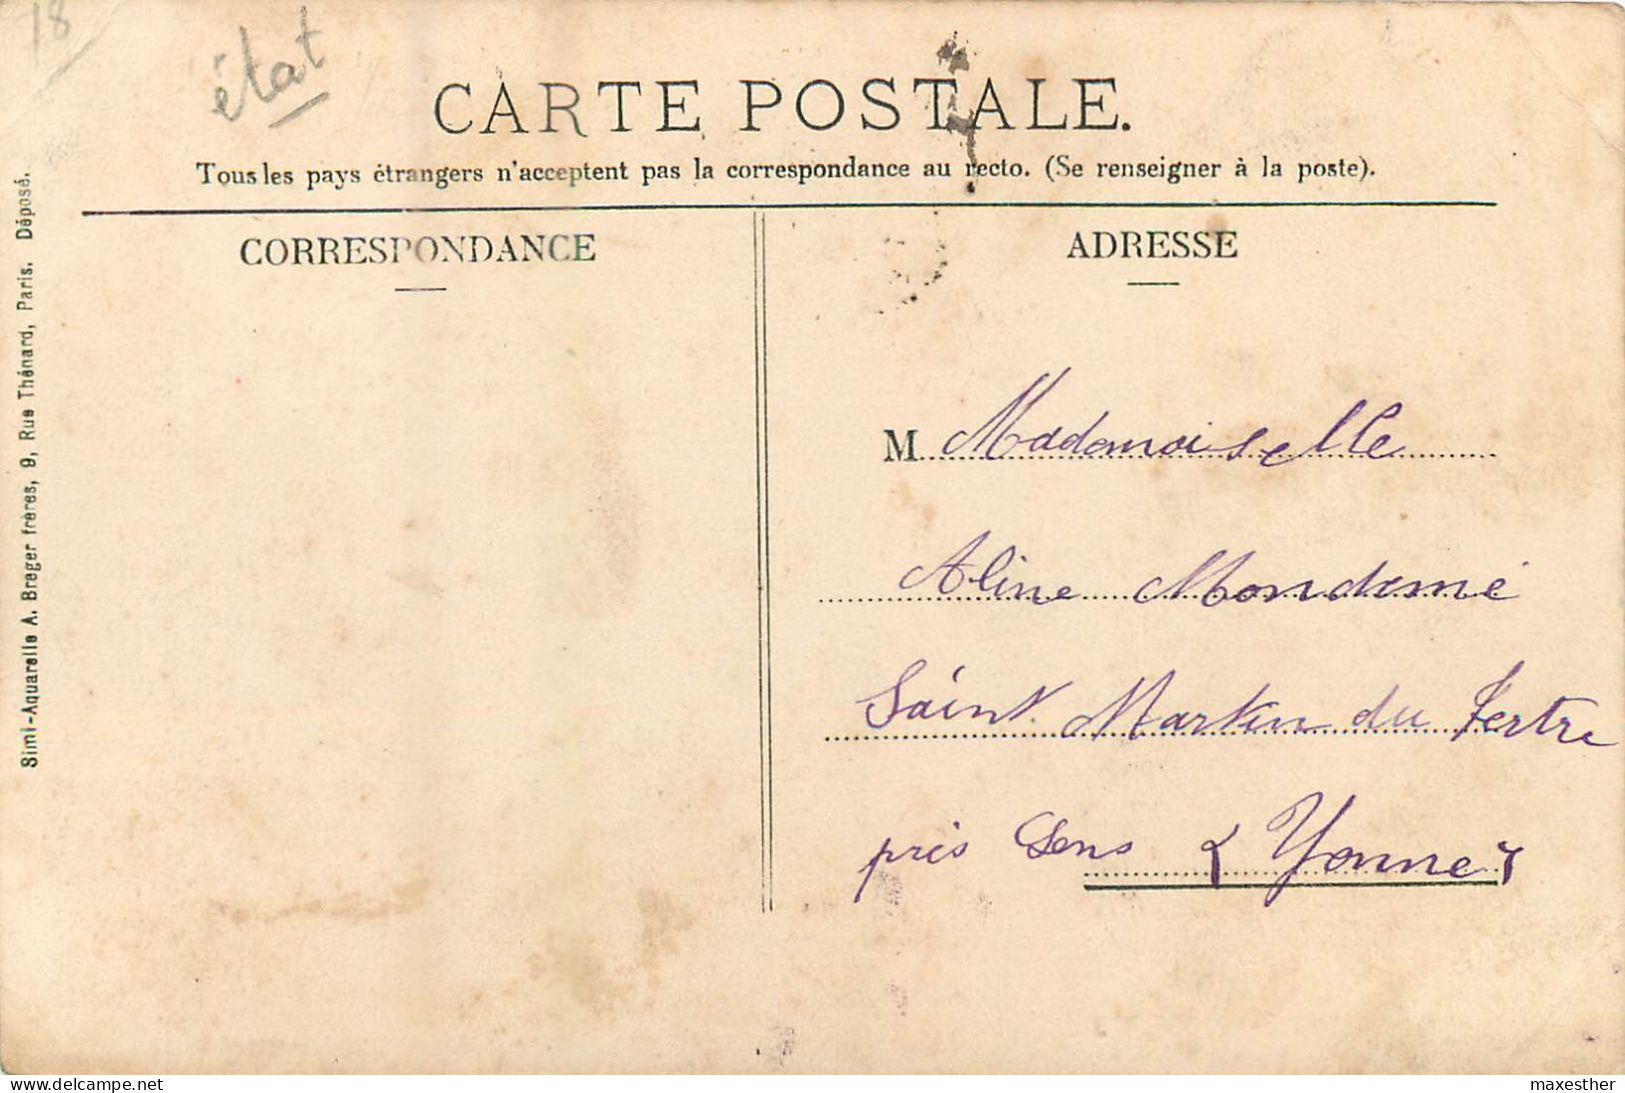 18
état
CARTE POSTALE.
Tous les pays étrangers n'acceptent pas la correspondance au recto. (Se renseigner à la poste).
CORRESPONDANCE
ADRESSE
M Mademoiselle
Aline Mondemé
Saint Martin du Tertre
près Sens
Yonne
Simi-Aquarelle A. Breger frères, 9, Rue Thénard, Paris. Déposé.
www.delcampe.net
maxesther